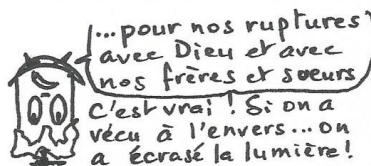 ...pour nos ruptures
avec Dieu et avec
nos frères et soeurs
c'est vrai ! Si on a
vécu à l'envers... on
a écrasé la lumière !